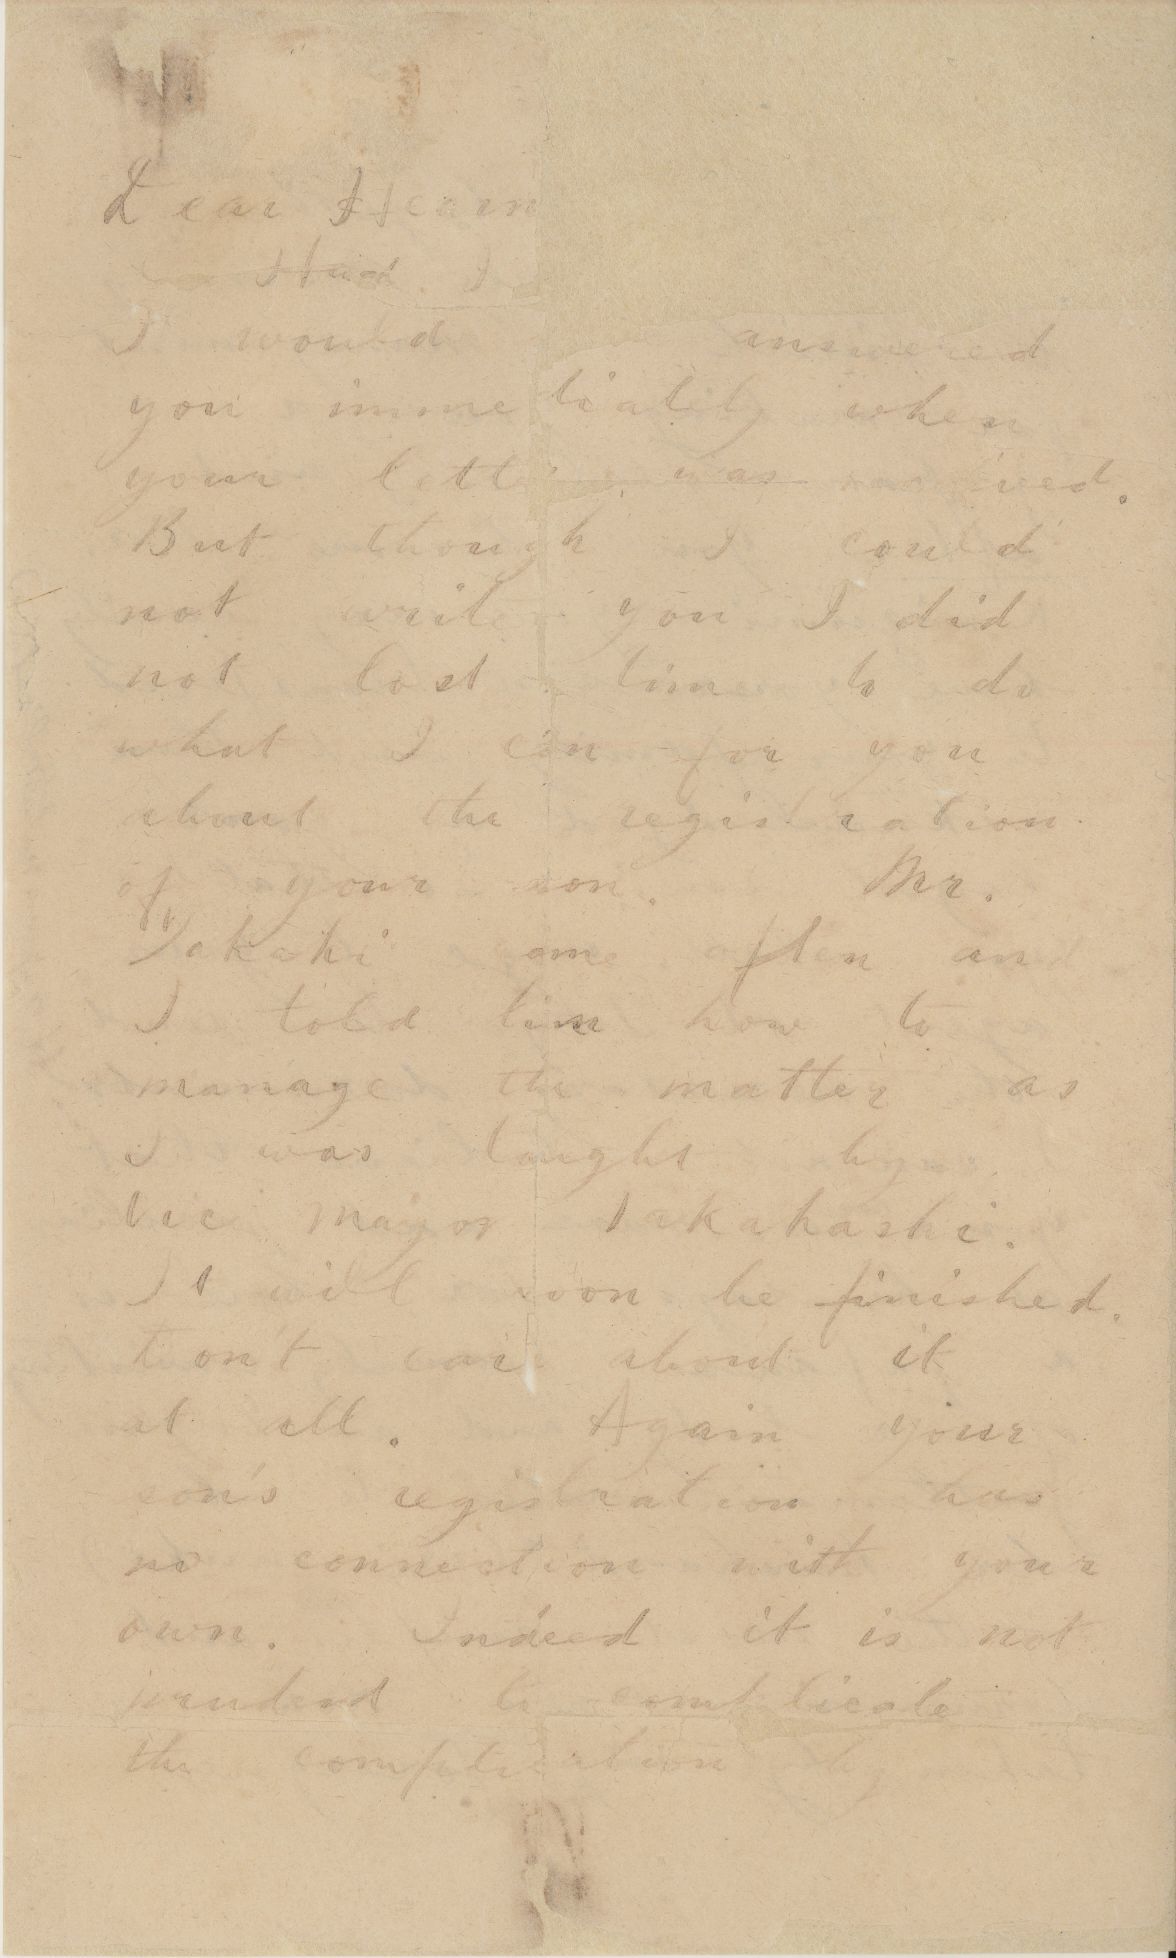 Dear Hearn
Had I
I would answered
you immediatily when
your letter was received.
But though I could
not write you I did
not lost time to do
what I can for you
about the registration
of your son. Mr.
Takaki came often and
I told him how to
manage the matter as
I was taught by
Vice Mayor Takahashi.
It will soon be finished.
Don't care about it
at all. Again your
son's registration has
no connection with your
own. Indeed it is not
prudent to complicate
the complication by